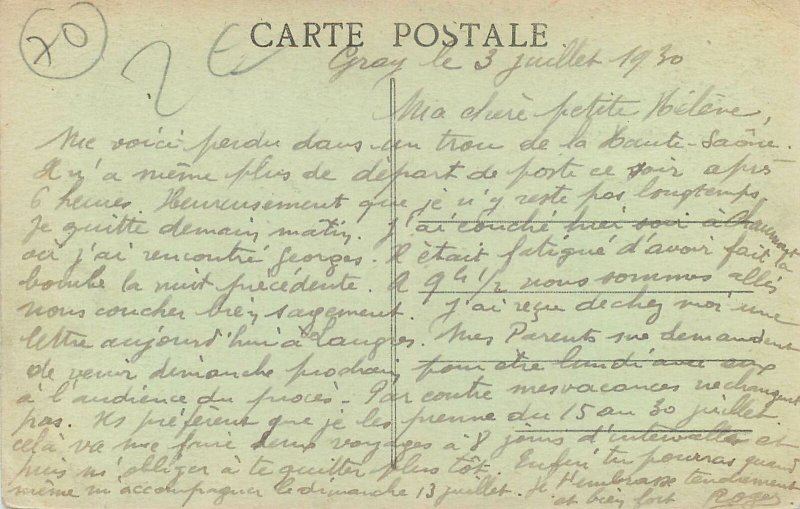 70
CARTE POSTALE
Gray le 3 juillet 1930
Ma chère petite Hélène,
Me voici perdu dans un trou de la Haute-Saône.
Il n'a même plus de départ de poste ce soir après
6 heures. Heureusement que je n'y reste pas longtemps,
Je quitte demain matin. J'ai couché hier soir à Chaumont
où j'ai rencontré Georges. Il était fatigué d'avoir fait la
bombe la nuit précédente. A 9h 1/2 nous sommes allés
nous coucher bien sagement. J'ai reçu de chez moi une
lettre aujourd'hui à Langres. Mes Parents me demandent
de venir dimanche prochain pour être lundi avec eux
à l'audience du procès. Par contre mes vacances ne changent
pas. Ils préfèrent que je les prenne du 15 au 30 juillet.
celà va me faire deux voyages à 8 jours d'intervalles et
puis m'obliger à te quitter plus tôt. Enfin tu pourras quand
même m'accompagner le dimanche 13 juillet. Je t'embrasse tendrement
et bien fort Roger